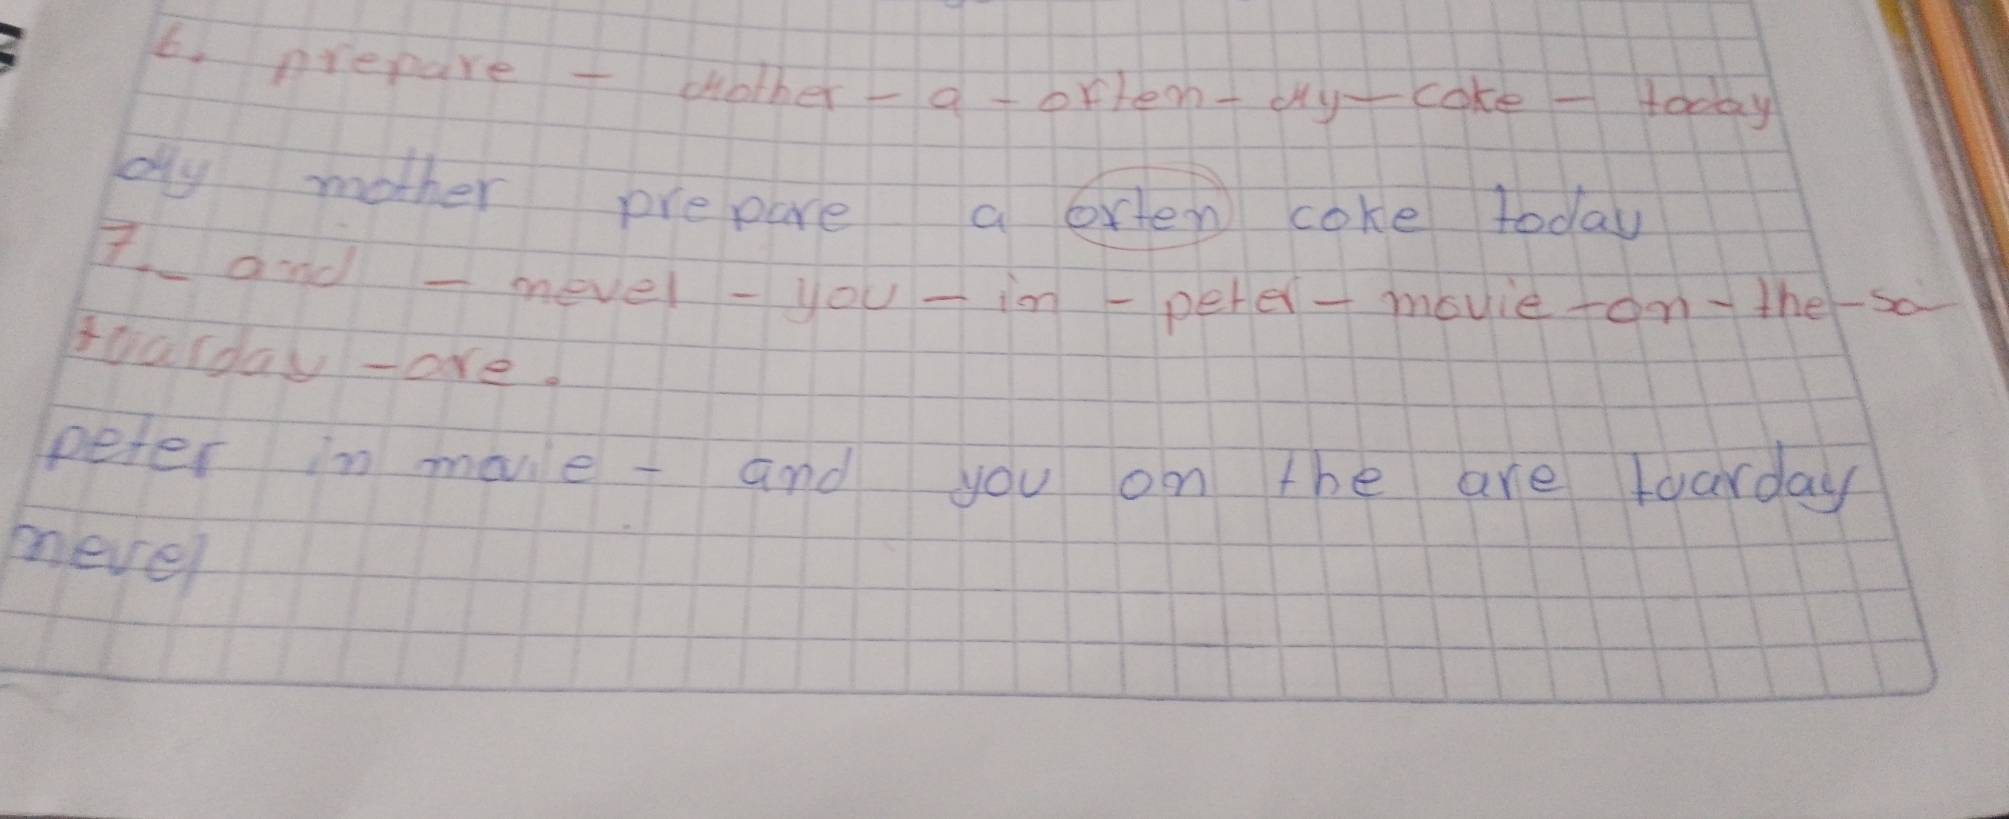 6. prepare - Mother - a - orten - My - coke - today
My mother prepare a orten coke today
7_ and - nevel - you - in - peter - movie - on - the - sa
tuarday - are.
peter in movie - and you on the are tuarday
nevel